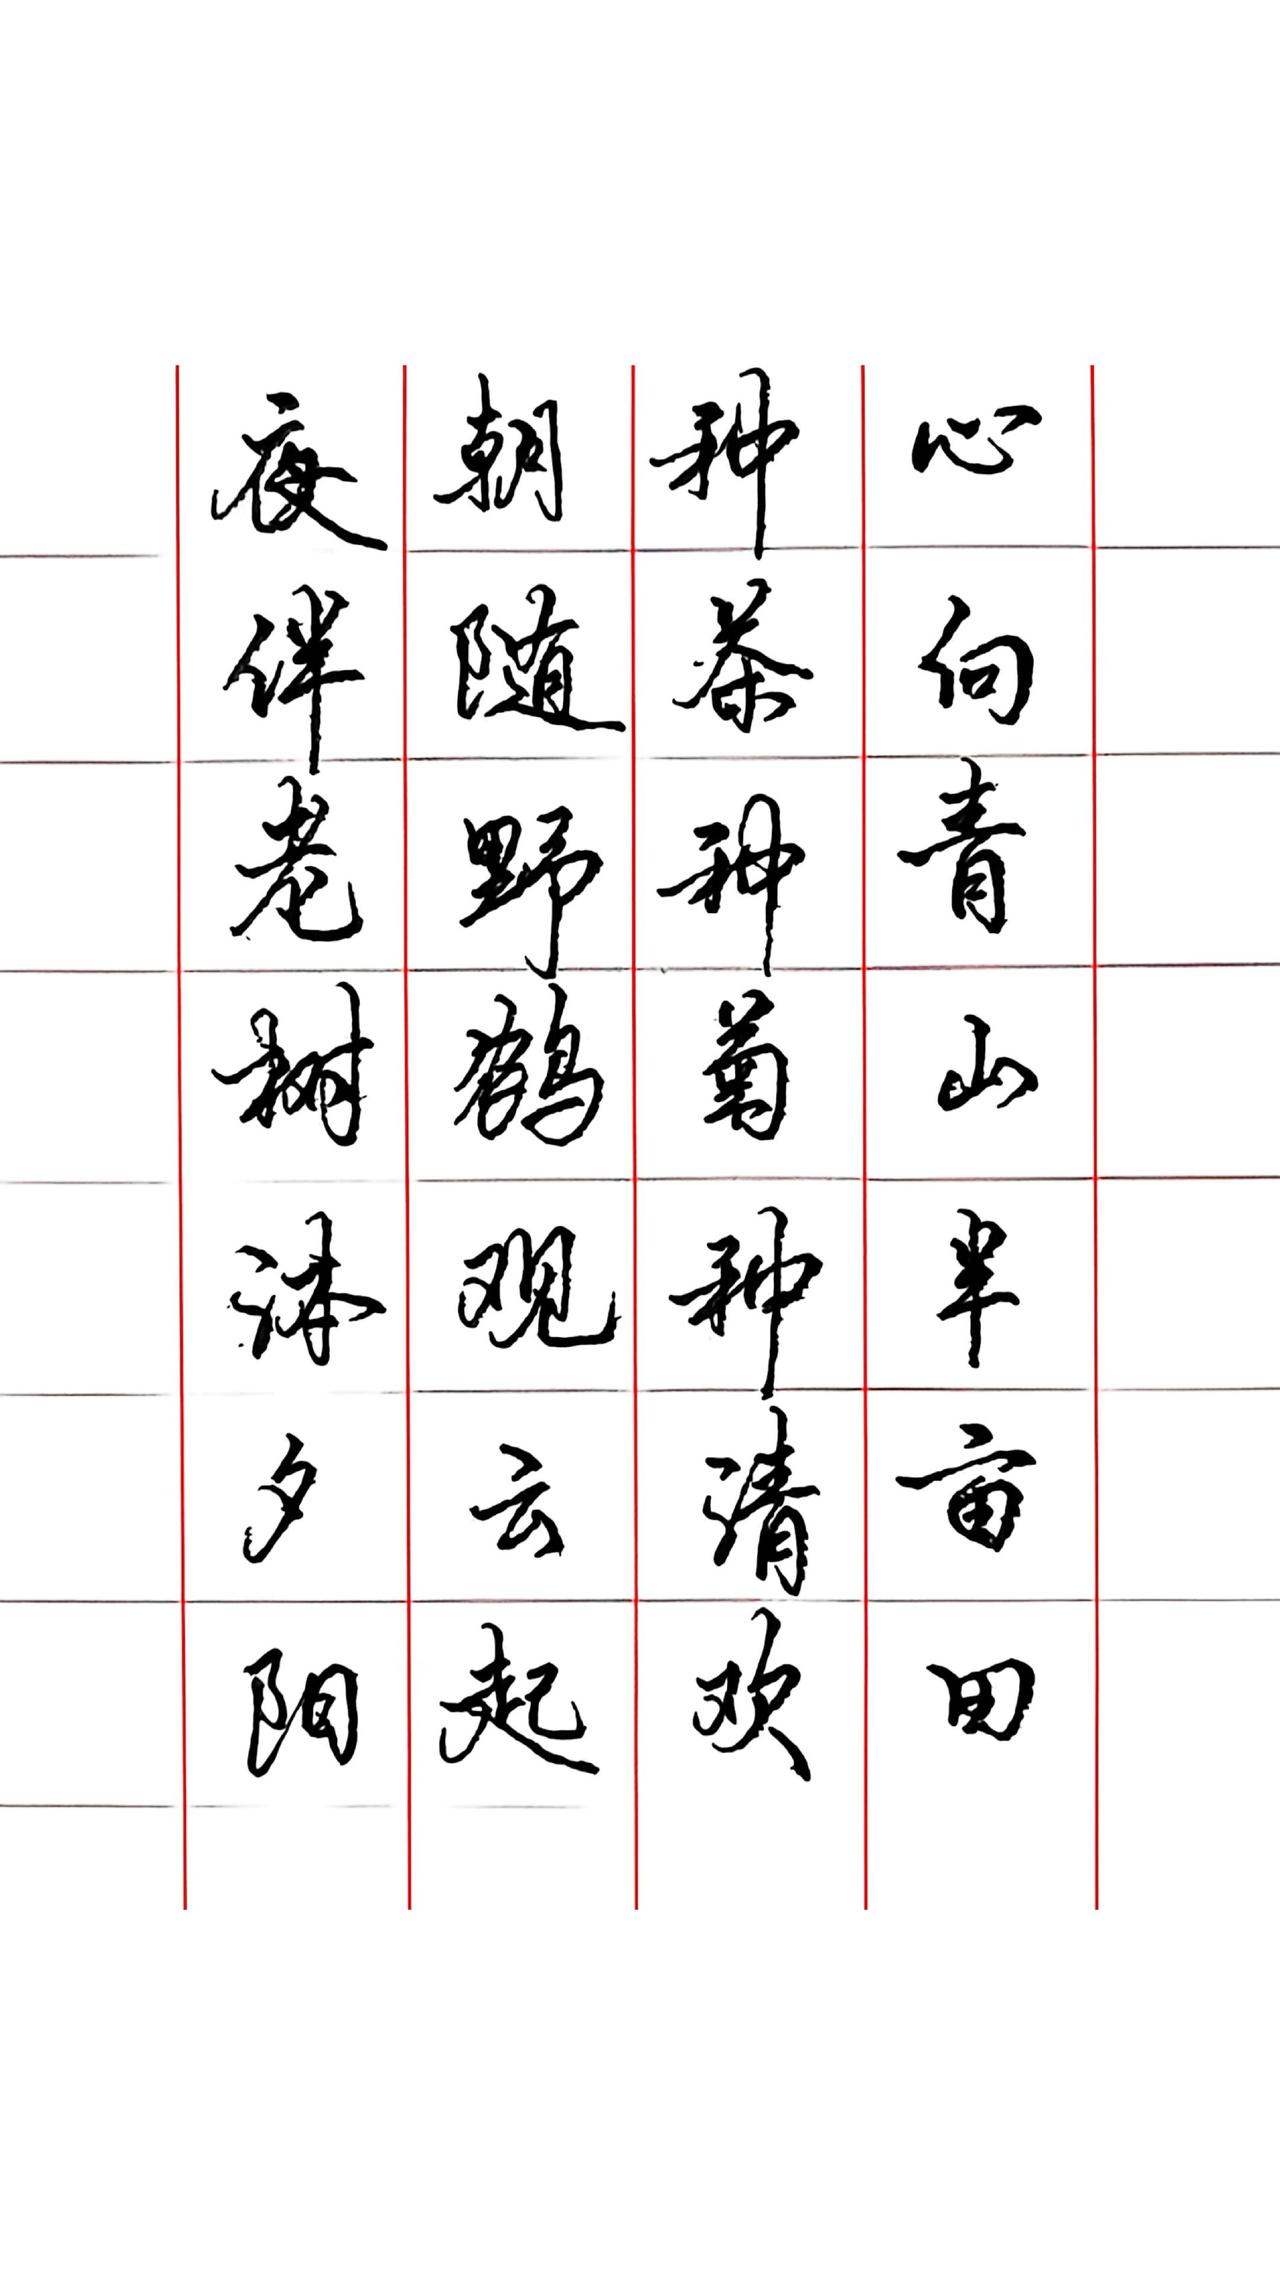 心向青山半亩田
种茶种菊种清欢
朝随野鹤观云起
夜伴老树沐夕阳